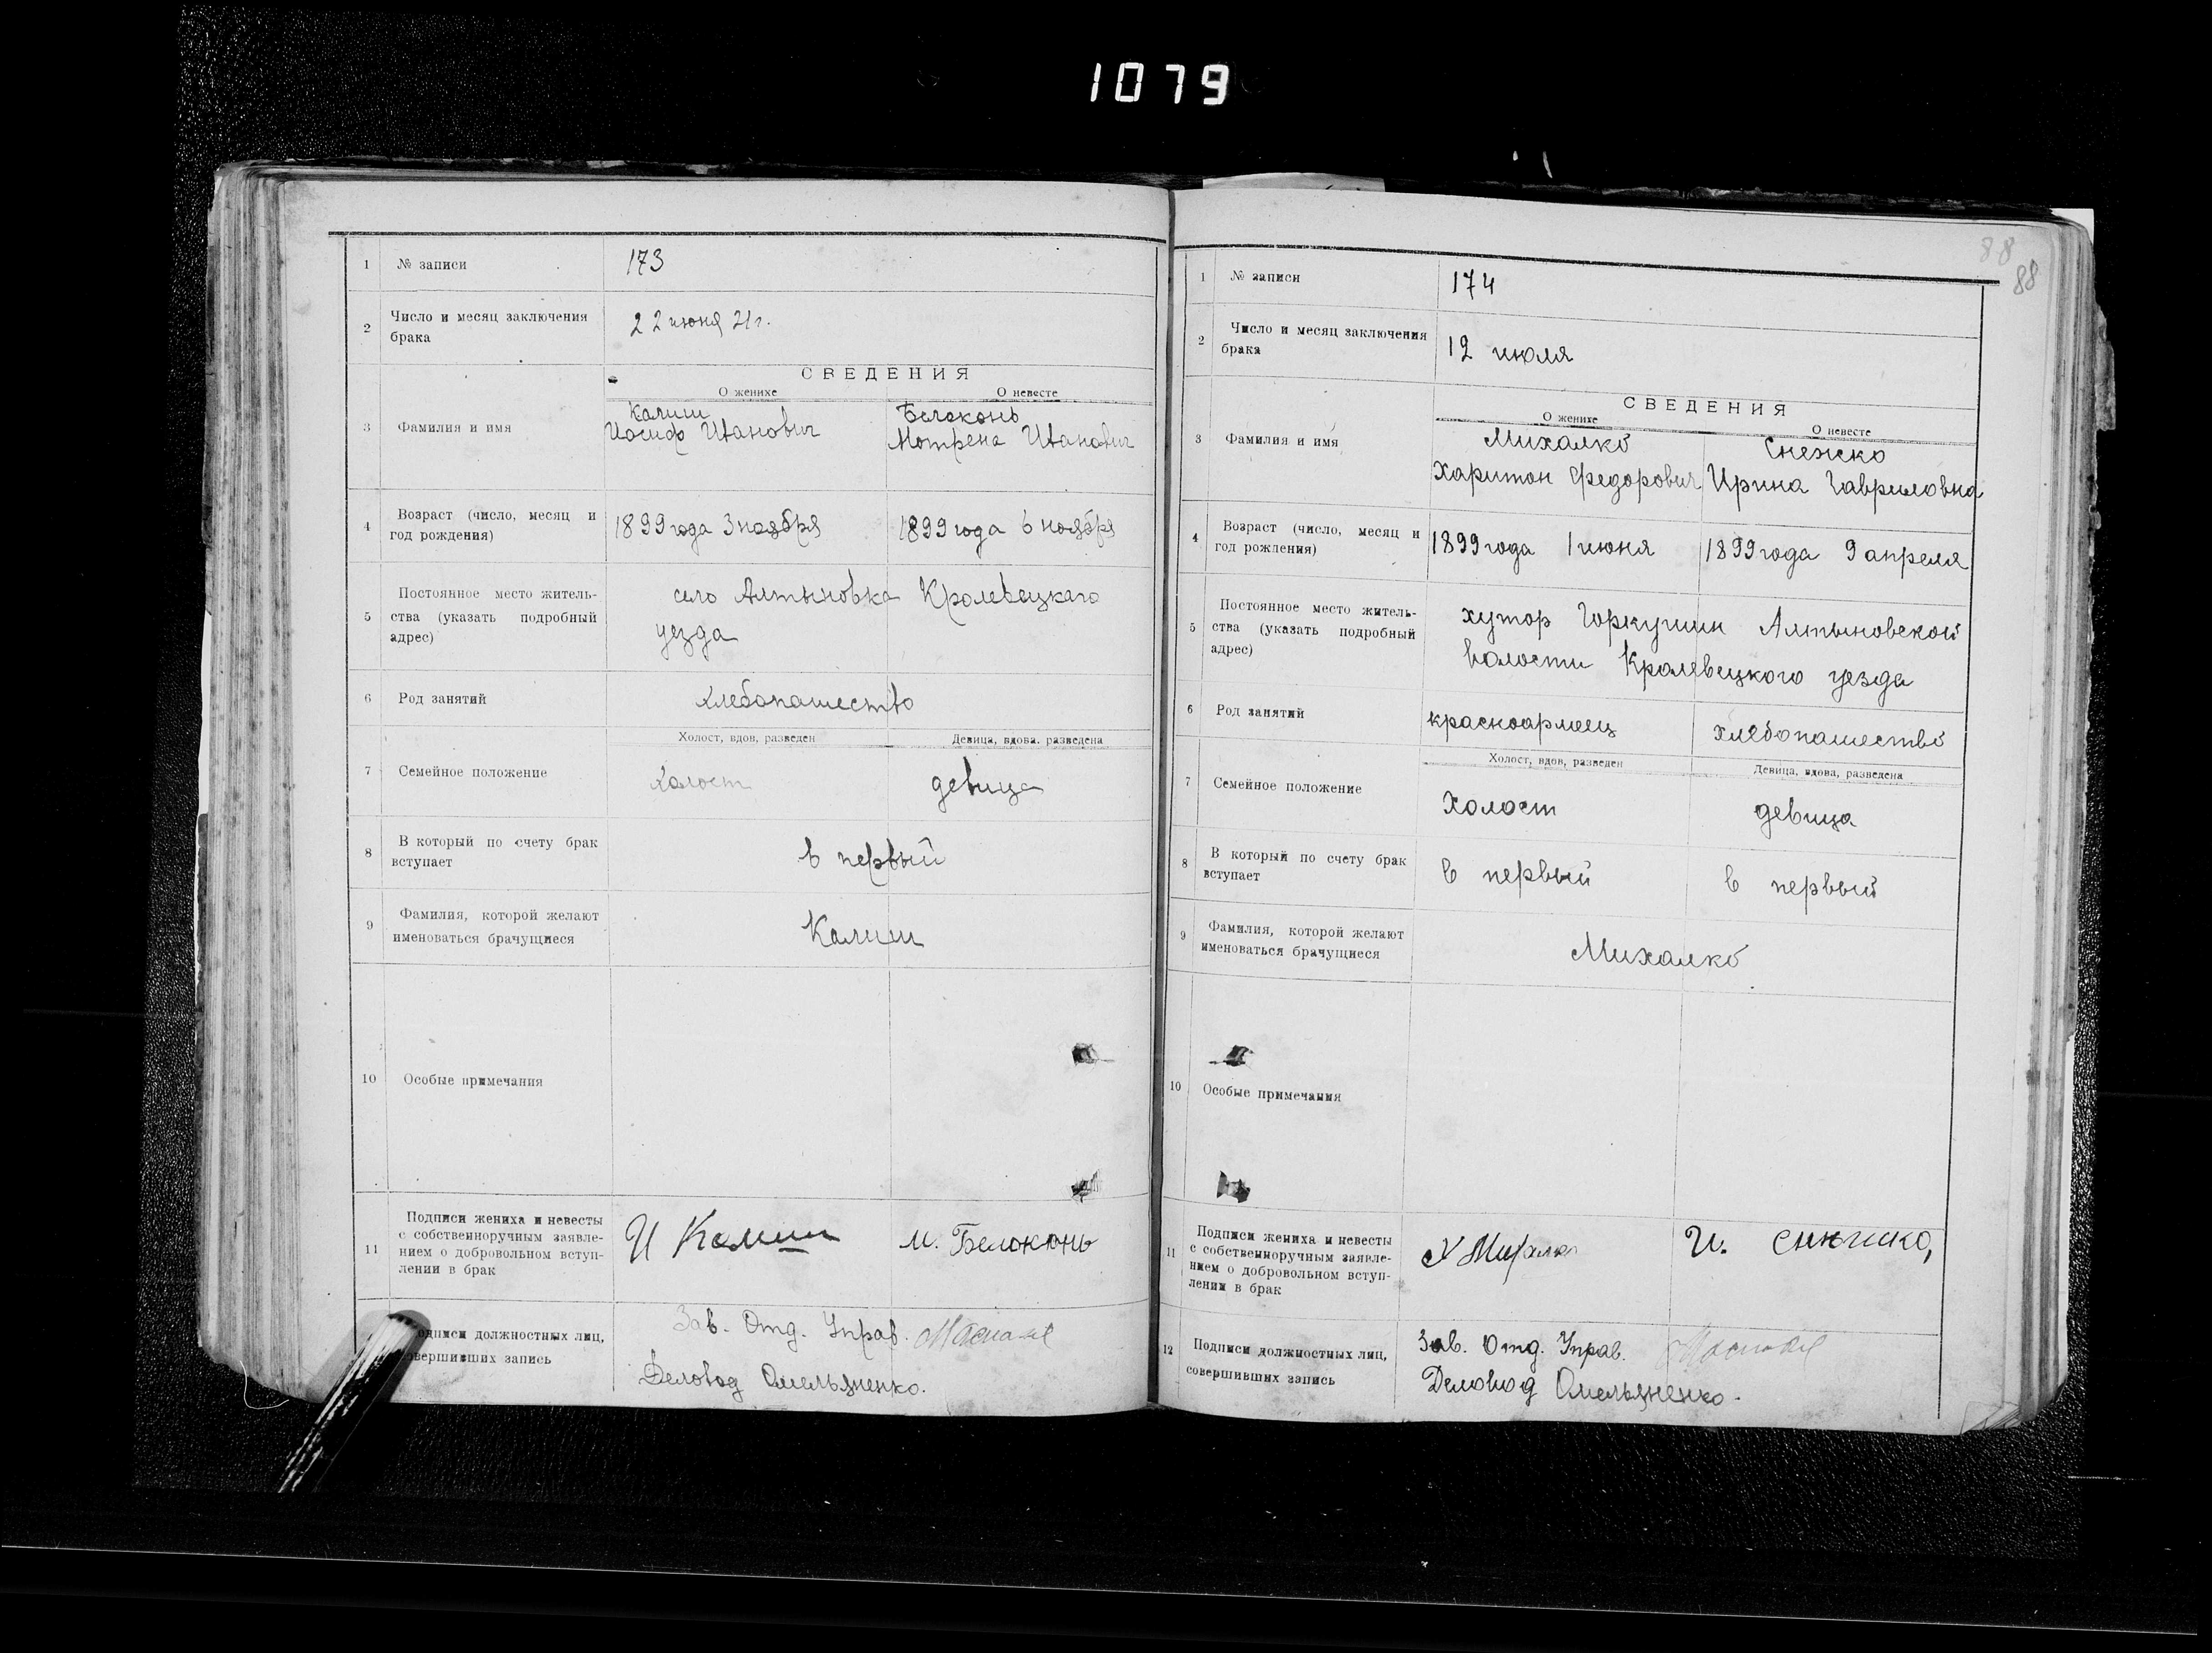 1079
1 № записи 173
2 Число и месяц заключения
брака
22 июня 21 г.
СВЕДЕНИЯ
О женихе О невесте
3 Фамилия и имя
Калиш Белоконь
Иосиф Иванович Мотрена Иванович
4 Возраст (число, месяц и
год рождения)
1899 года 3 ноября 1899 года 6 ноября
5 Постоянное место житель-
ства (указать подробный
адрес)
село Алтыновка Кролевецкаго
уезда
6 Род занятий хлебопашество
Холост, вдов, разведен Девица, вдова. разведена
7 Семейное положение холост девица
8 В который по счету брак
вступает
в первый
9 Фамилия, которой желают
именоваться брачущиеся
Калиш
10 Особые примечания
11 Подписи жениха и невесты
с собственноручным заявле-
нием о добровольном вступ-
лении в брак
И Калиш М. Белоконь
одписи должностных лиц,
овершивших запись
Зав. Отд. Управ.
Деловод Омельяненко.
88
88
1 № записи 174
2 Число и месяц заключения
брака
12 июля
СВЕДЕНИЯ
О женихе О невесте
3 Фамилия и имя
Михалко Снежко
Харитон Федорович Ирина Гавриловна
4 Возраст (число, месяц и
год рождения)
1899 года 1 июня 1899 года 9 апреля
5 Постоянное место житель-
ства (указать подробный
адрес)
хутор Алтыновской
волости Кролевецкого уезда
6 Род занятий красноармеец хлебопашество
Холост, вдов, разведен Девица, вдова, разведена
7 Семейное положение Холост девица
8 В который по счету брак
вступает
в первый в первый
9 Фамилия, которой желают
именоваться брачущиеся
Михалко
10 Особые примечания
11 Подписи жениха и невесты
с собственноручным заявле-
нием о добровольном вступ-
лении в брак
Х Михалко И.
12 Подписи должностных лиц,
совершивших запись
Зав. Отд. Управ.
Деловод Омельяненко.